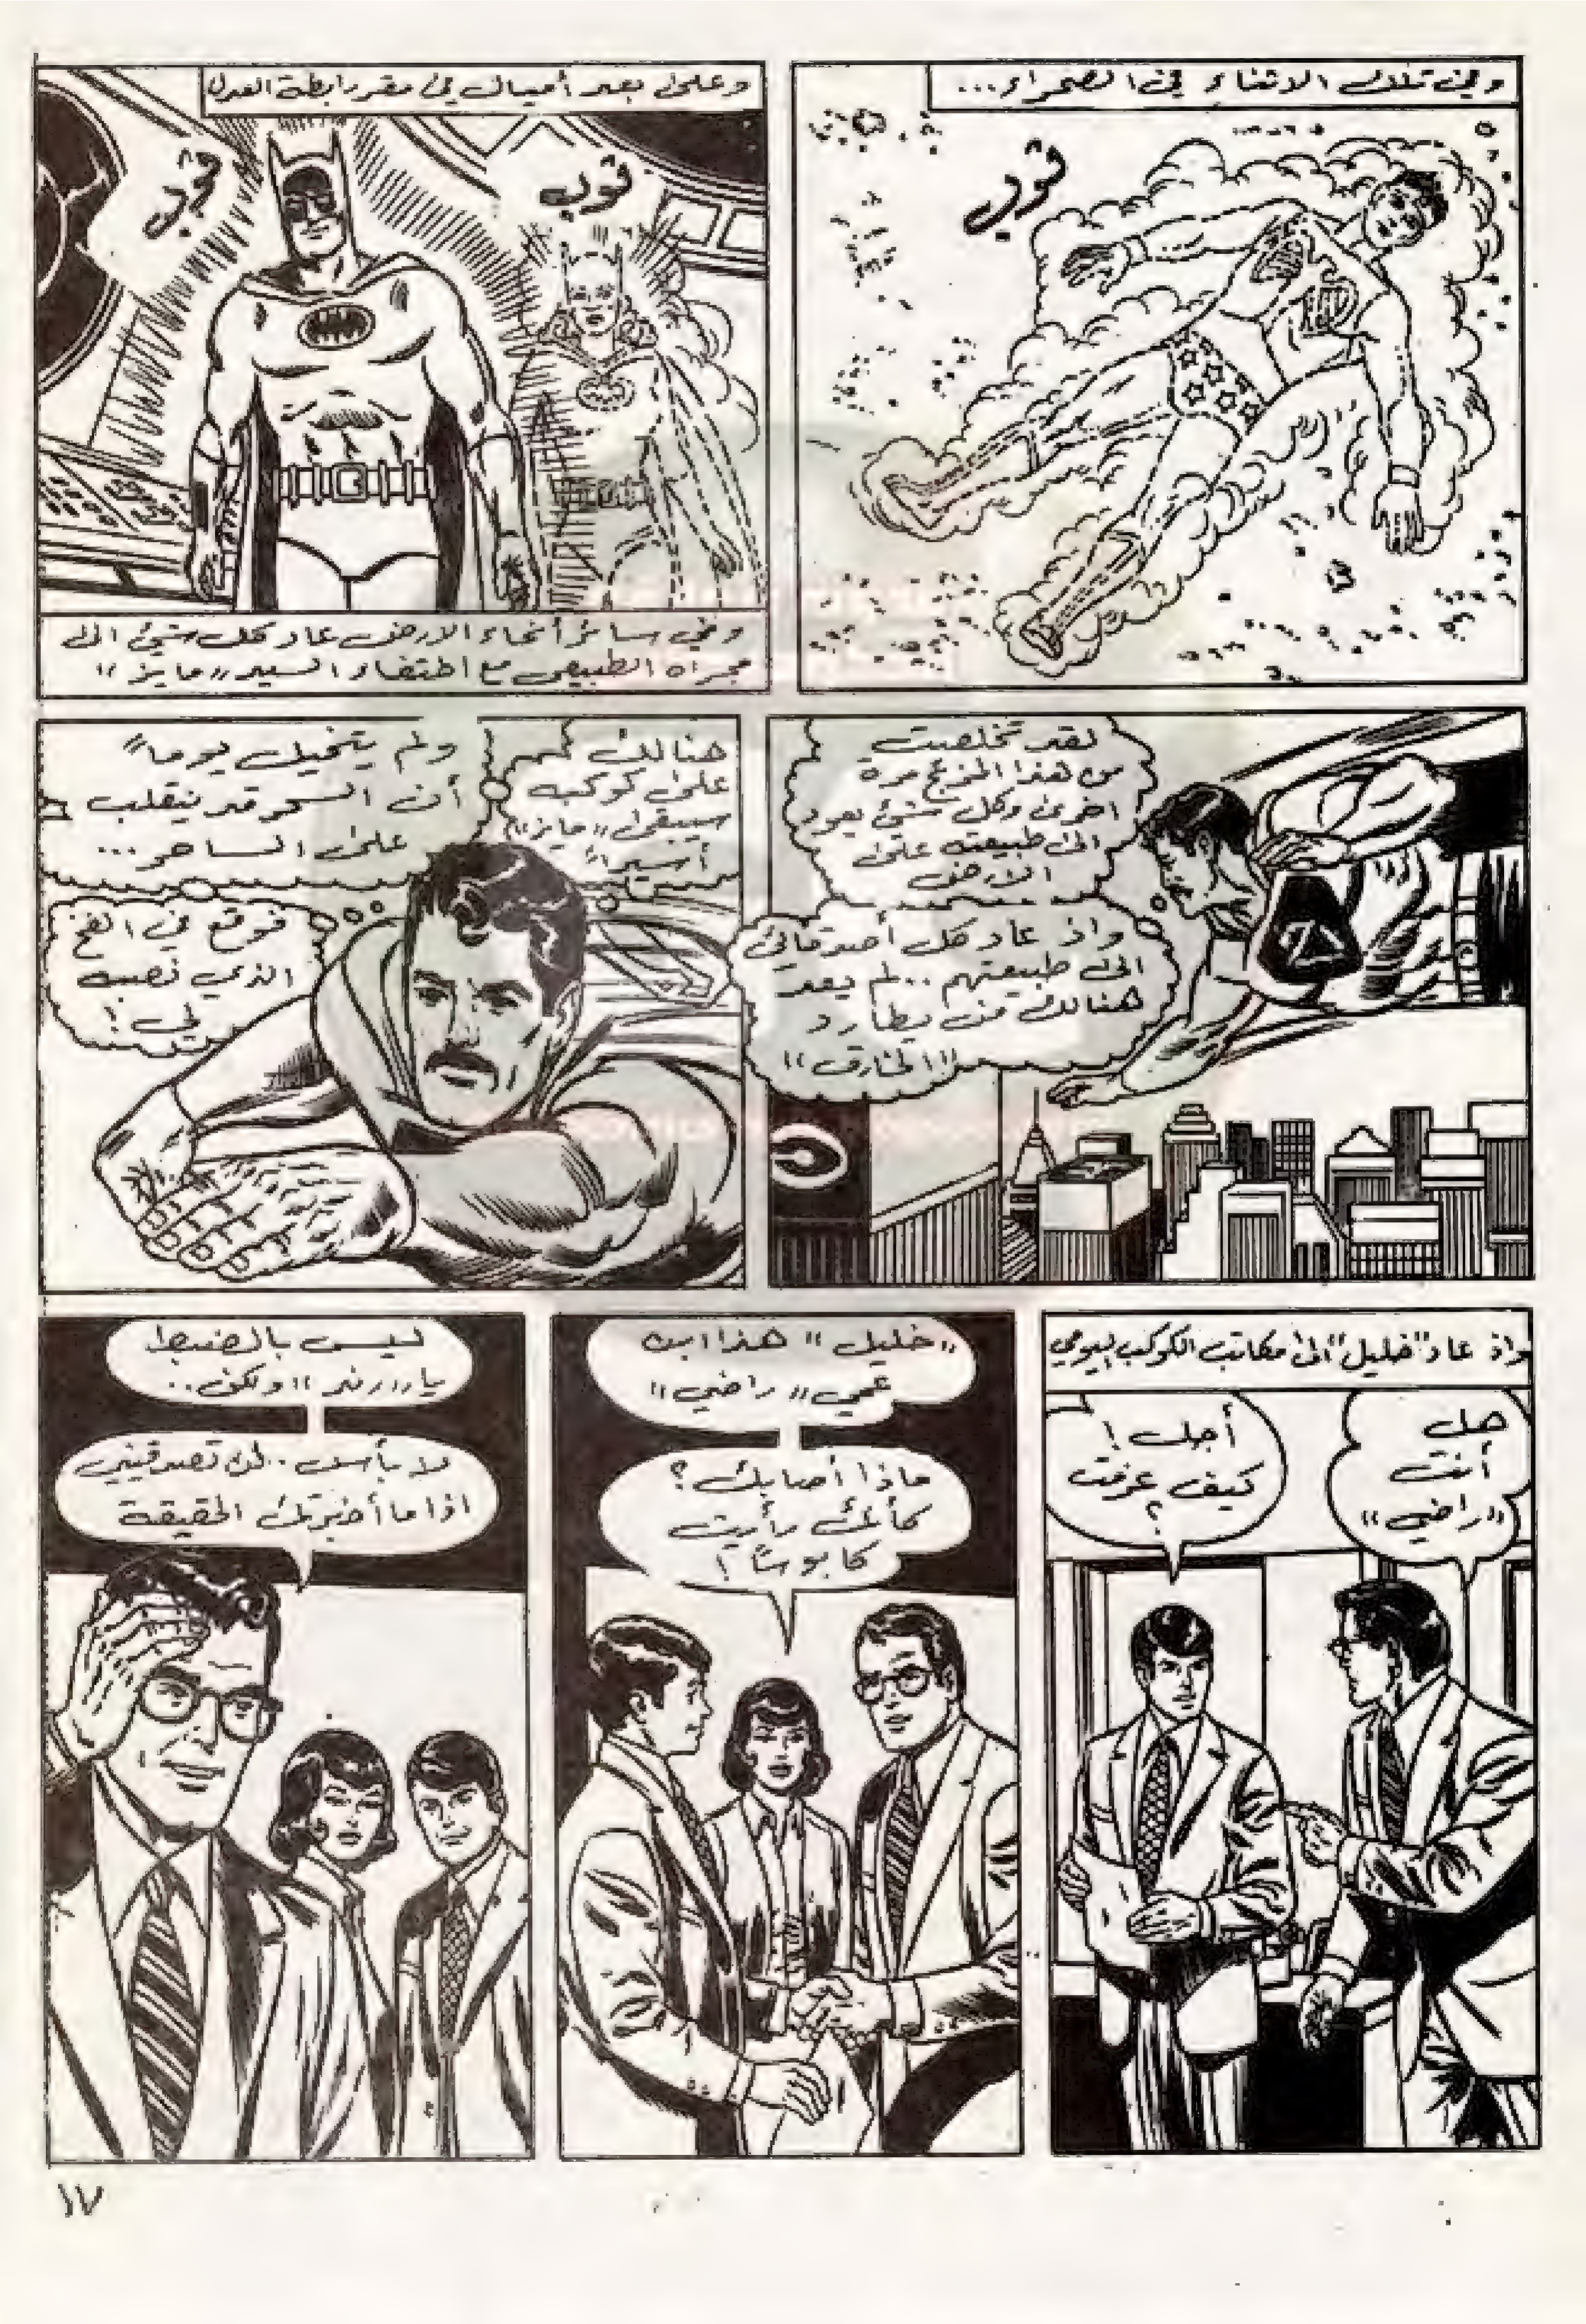 وفي تلك الاثناء في الصحراء...
ڤوب
وعلى بعد أميال في مقر رابطة العدل
ڤوب
ڤوب
وفي سائر أنحاء الارض عاد كل شيئ الى
مجراه الطبيعي مع اختفاء السيد "مايز"
لقد تخلصت
من هذا المزعج مرة
اخرى وكل شيئ يعود
الى طبيعته على
الارض
واذ عاد كل أصدقائي
الى طبيعتهم.. لم يعد
هنالك من يطارد
"الخارق"
هنالك
على كوكبه
سيبقى "مايز"
أسيراً
ولم يتخيل يوماً
أن السحر قد ينقلب
على الساحر...
فوقع في الفخ
الذي نصبه
لي!
واذ عاد "خليل" الى مكاتب الكوكب اليومي
هل
أنت
"راضي"
أجل!
كيف عرفت
؟
"خليل" هذا ابن
عمي "راضي"
ماذا أصابك؟
كأنك رأيت
كابوساً!
ليس بالضبط
يا "رندا" ولكن..
لا بأس.. لن تصدقيني
اذا ما أخبرتك الحقيقة
١٧